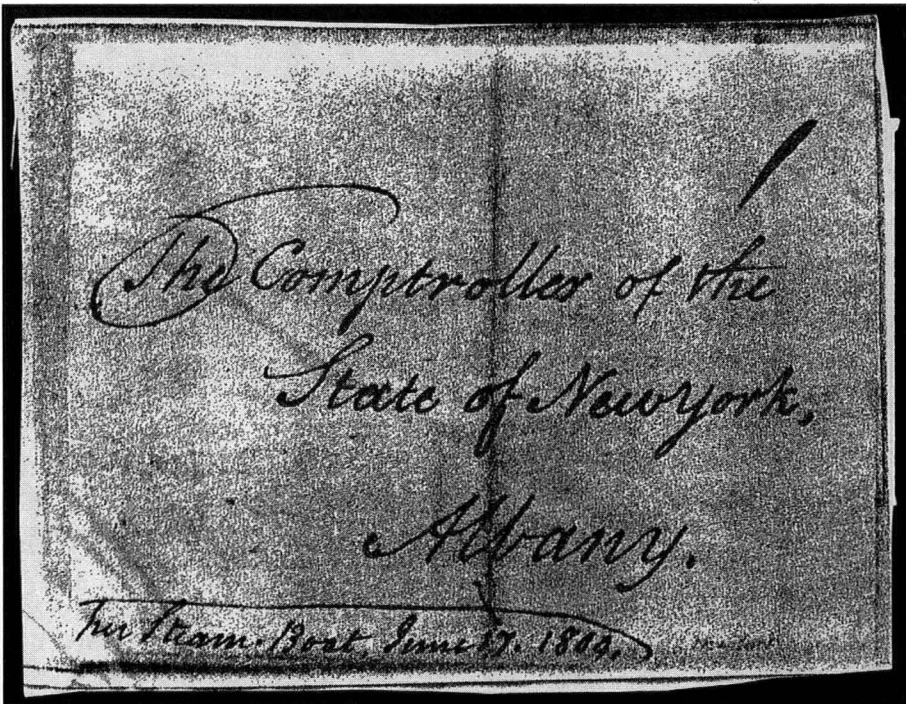 The Comptroller of the
State of New York,
Albany.
Per Steam-Boat, June 17. 1809.